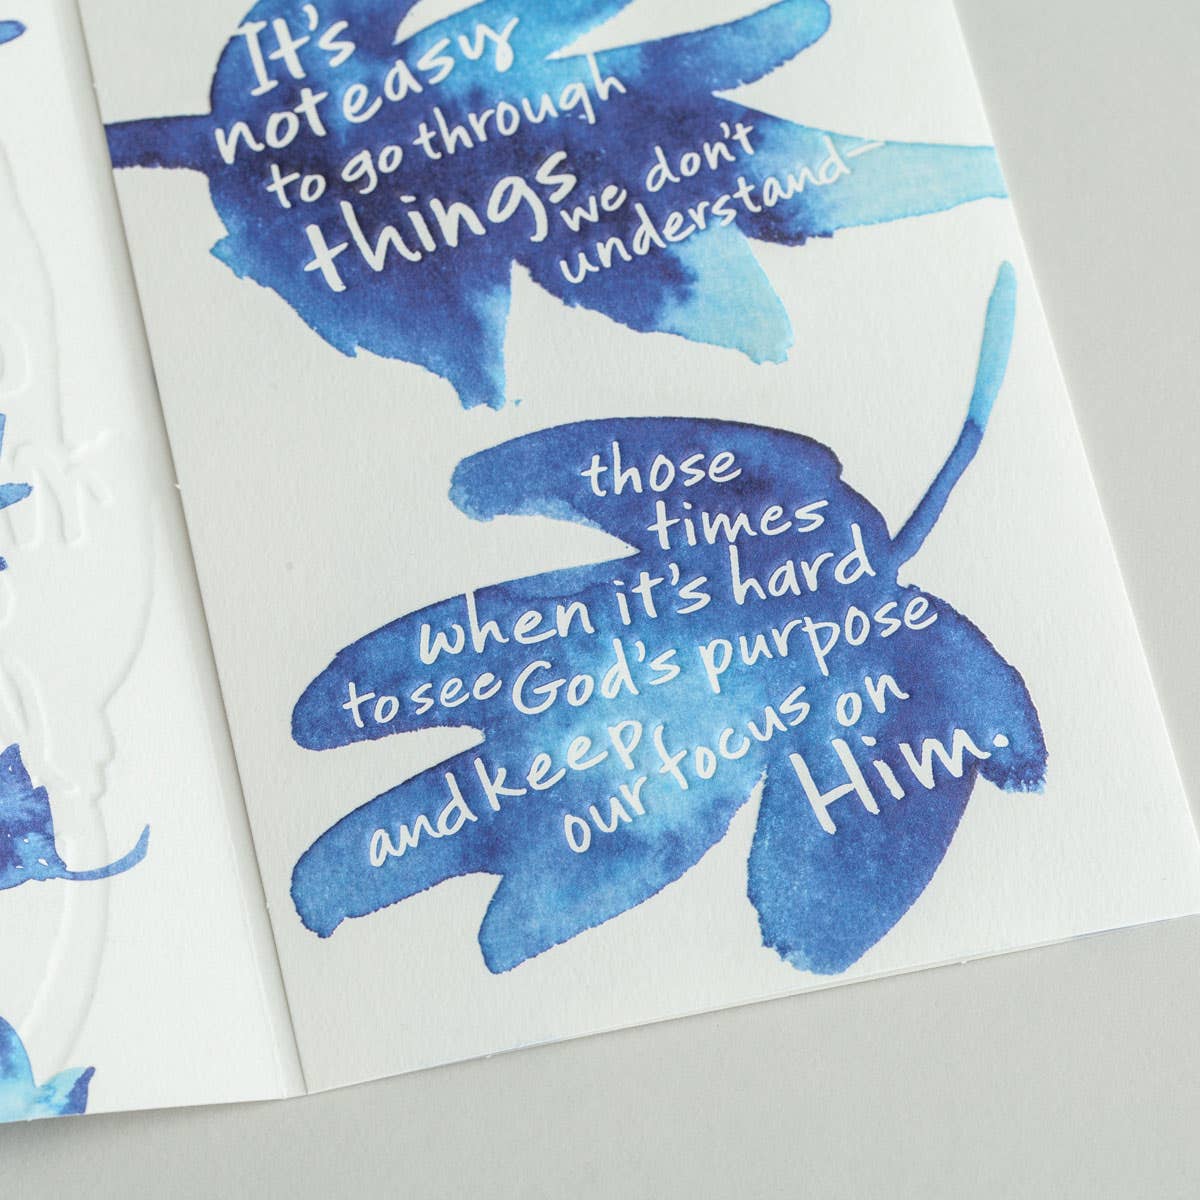 It's
not easy
to go through
things
we don't
understand—
those
times
when it's hard
to see God's purpose
and keep
our focus on
Him.